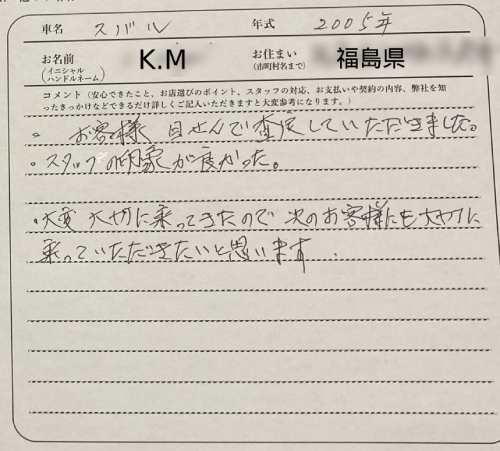 車名 スバル 年式 2005年
お名前 K.M お住まい 福島県
(イニシャル ハンドルネーム) (市町村名まで)
コメント(安心できたこと、お店選びのポイント、スタッフの対応、お支払いや契約の内容、弊社を知
ったきっかけなどできるだけ詳しくご記入いただきますと大変参考になります。)
・お客様目せんで査定していただきました。
・スタッフの印象が良かった。
・大変大切に乗ってきたので次のお客様にも大切に
乗っていただきたいと思います.